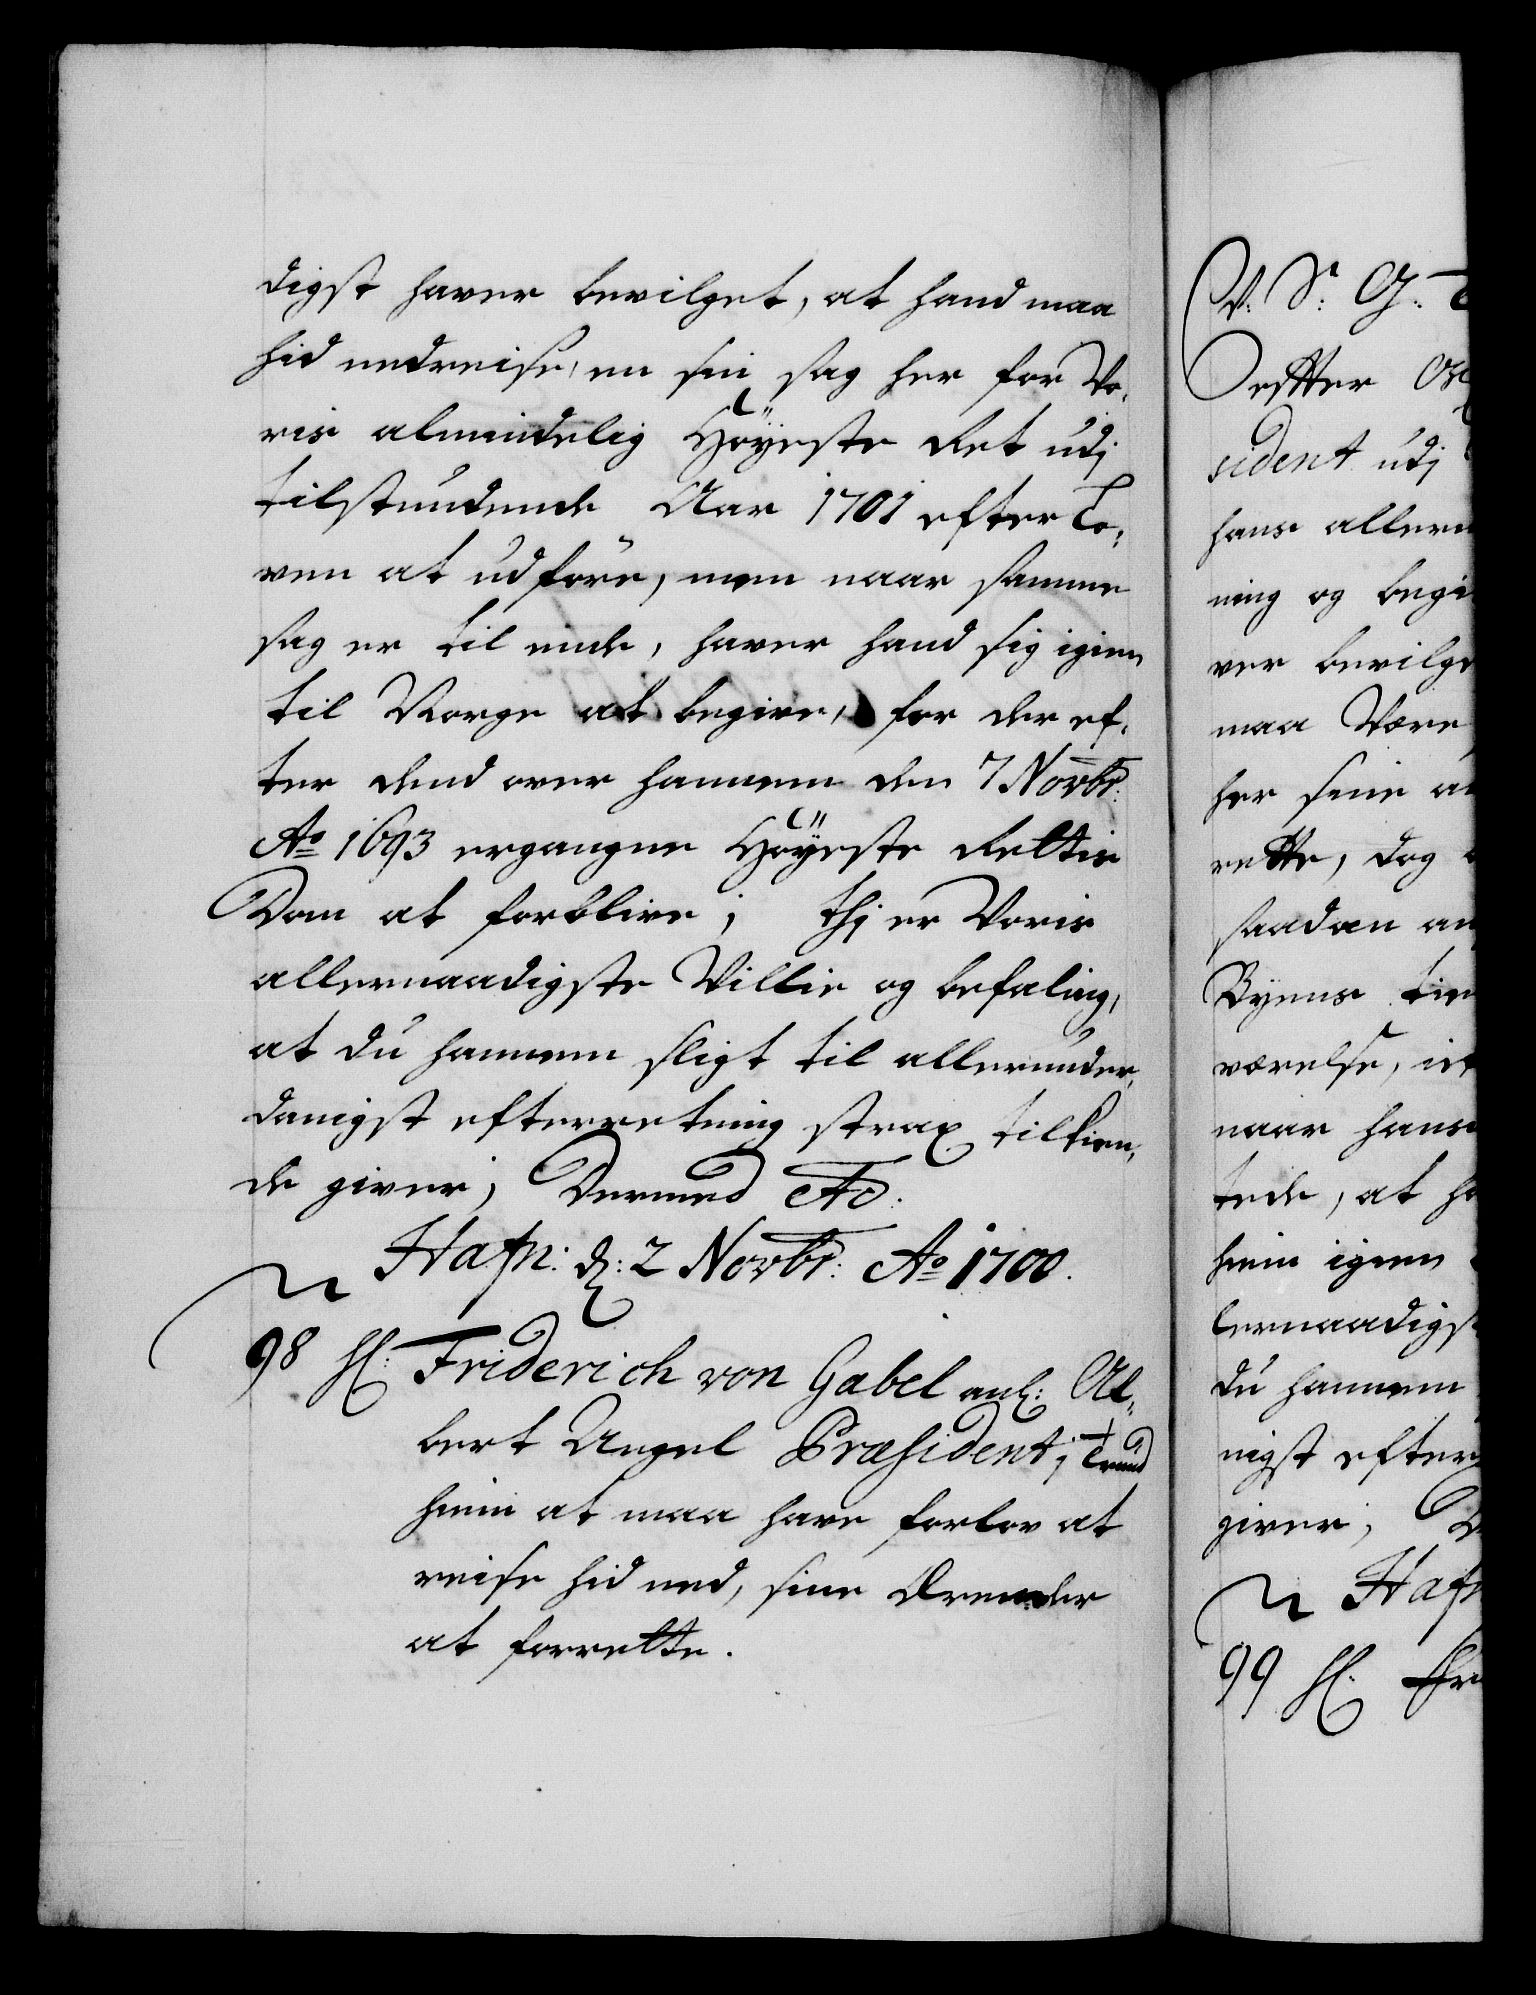 digst haver bevilget, at hand maa
hid nedreise, en sin sag her for Vo,
ris almindelig Höyeste Ret udj
tilstundende Aar 1701 efter Lo,
ven at udföre, men naar samme
sag er til ende, haver hand sig igien
til Norge at begive, for der ef,
ter dend over hannem den 7 Novbr:
Ao 1693 ergangne Höyeste Rettis
Dom at forblive; thj er Voris
allernaadigste Villie og befaling,
at du hannem sligt til allerunder,
danigst efterretning strax tilkien,
de giver; Dermed etc.
Hafn: d: 2 Novbr: Ao 1700.
98 H: Friderich von Gabel anl: Al,
bert Angel Præsident i Trund
hiem at maa have forlov at
reise hid ned, sine Ærender
at forrette.
V. S: G: T
efter
sident udj
hans allern
ning og begi
ver bevilge
maa Være
her sine a
rette, dog
saadan an
Byens tie
værelse, i
naar hans
tede, at h
hiem igien
lernaadigs
du hannem
nigst efter
giver,
Hafn
99 H.